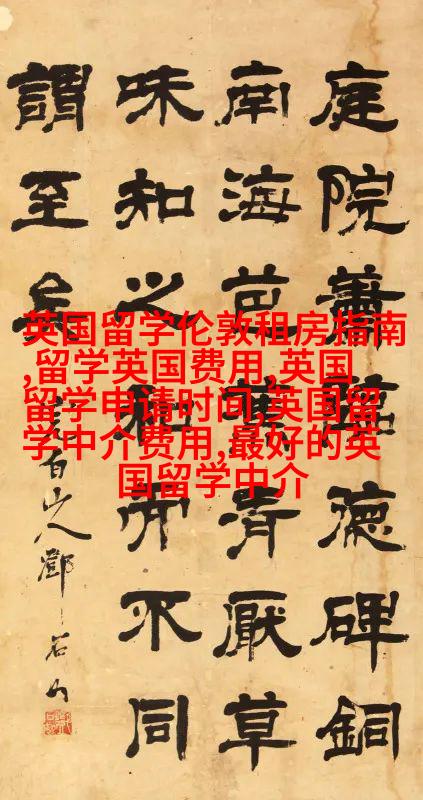 英国留学伦敦租房指南
,留学英国费用,英国
留学申请时间,英国留
学中介费用,最好的英
国留学中介
庭院蕭德碑銅
南海芭青厭草
味知之不同
謂至矣
完白山人鄧石如